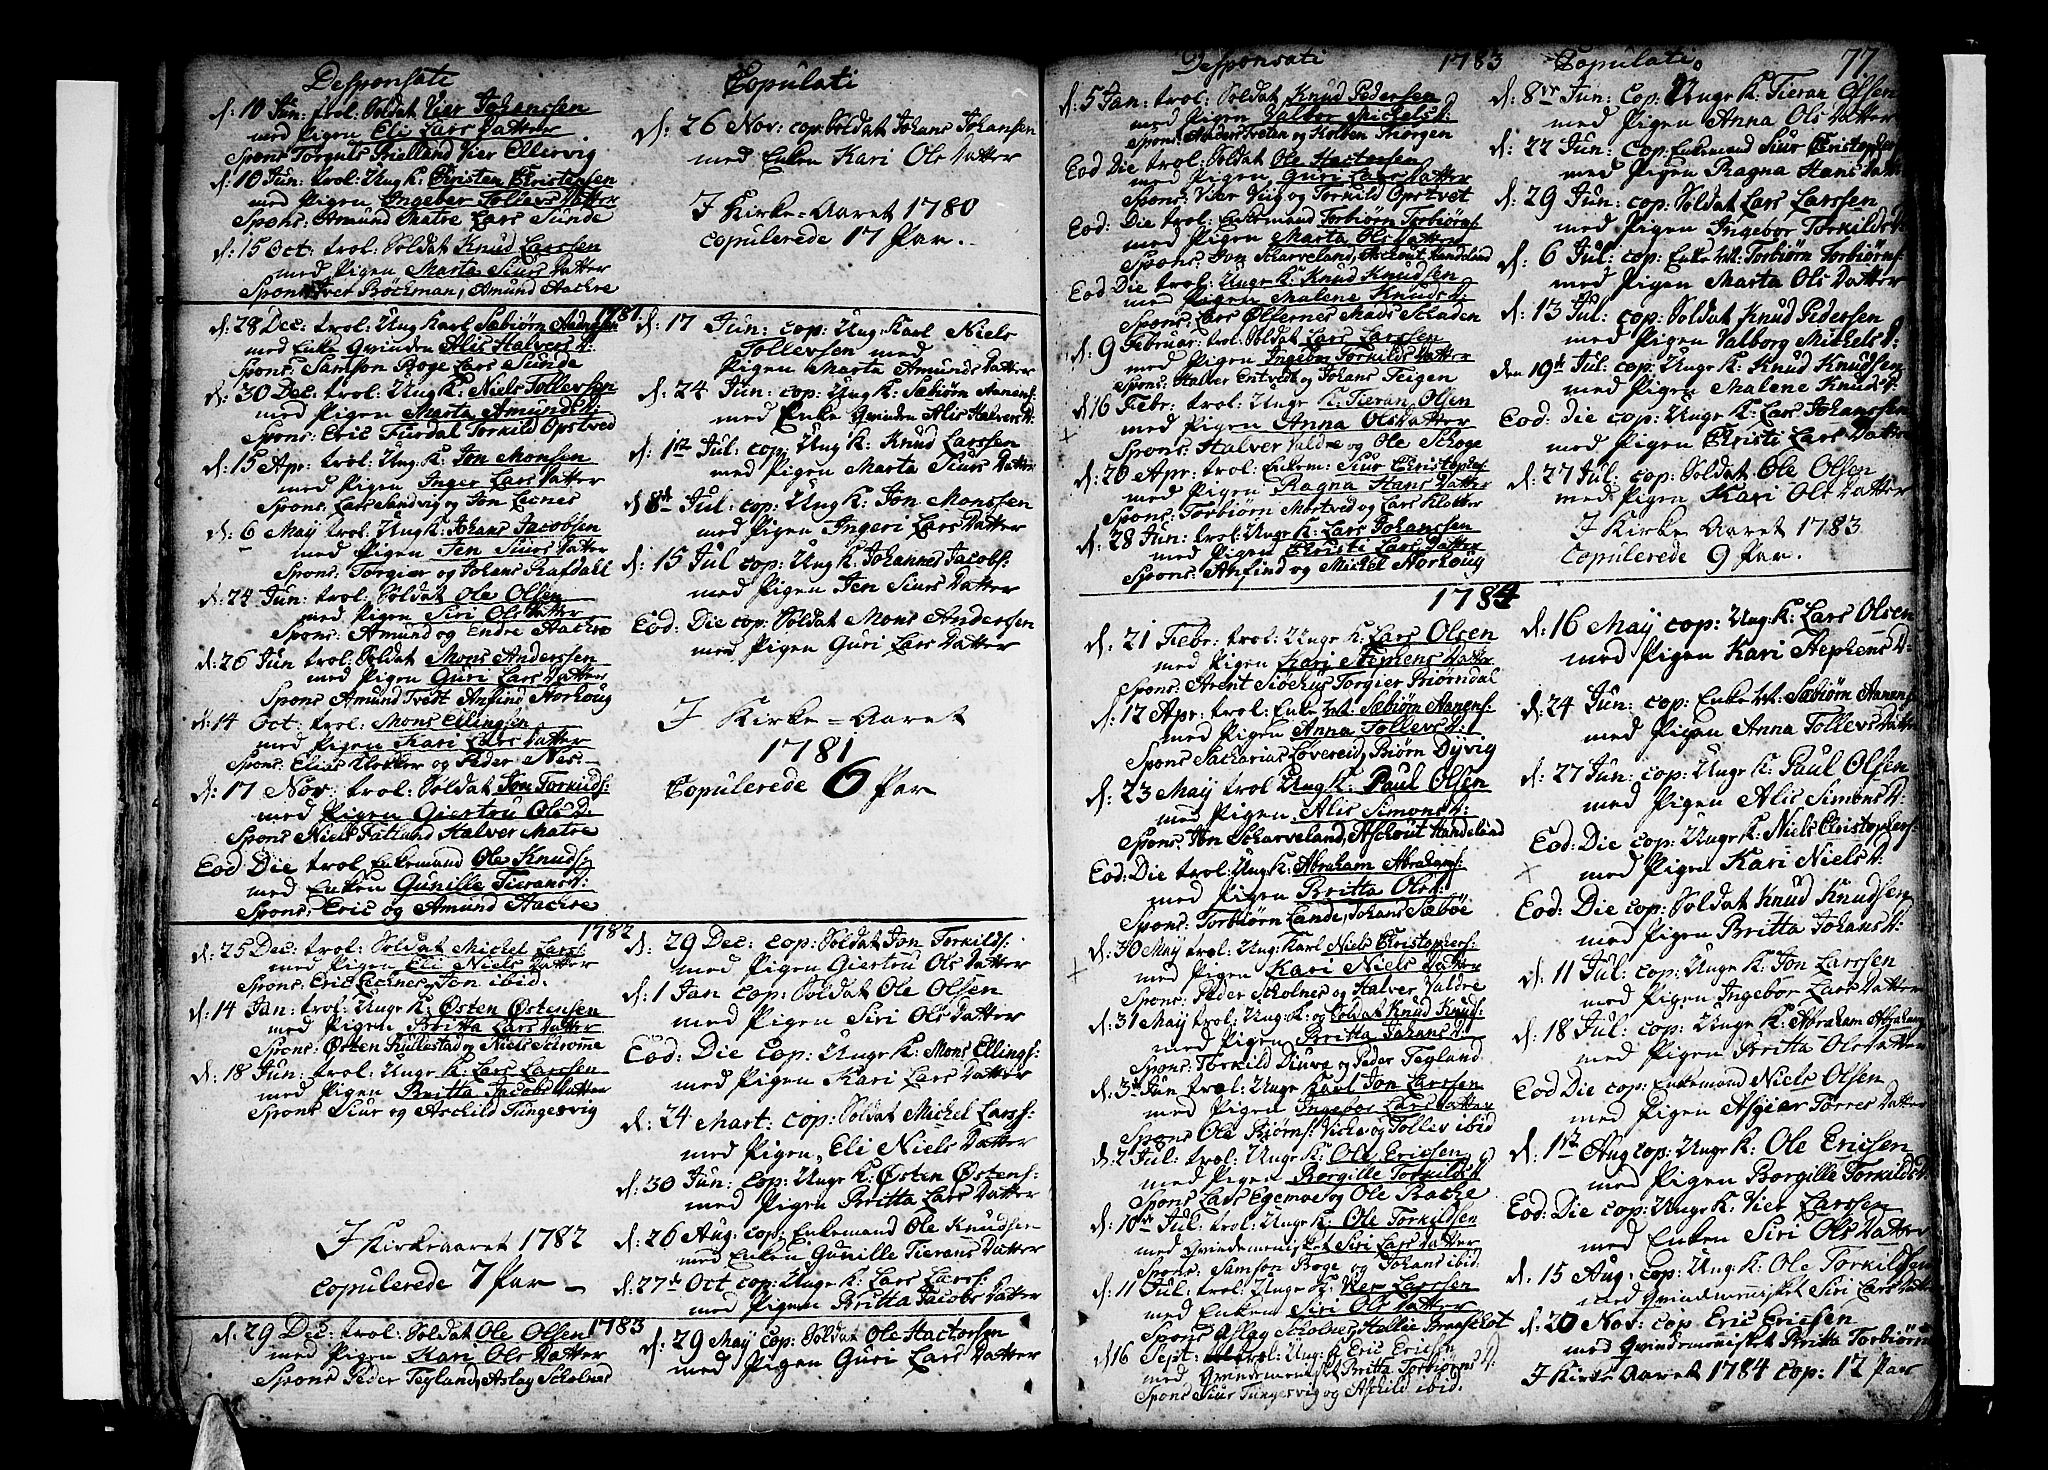 Desponsati
d: 10 Jun: trol: Soldat Vier Johanssen
med Pigen Eli Lars Datter
Spons Torguls Brielland Vier Ellervig
d: 10 Jun: trol: Ung K: Christen Christensen
med Pigen Ingebor Tollevs Datter
Spons: Amund Matre Lars Sunde
d: 15 Oct: trol: Soldat Knud Larssen
med Pigen Marta Siurs Datter
Spons Iver Böchman, Amund Aachre
1781
d: 28 Dec: trol: Ung Karl Sæbiørn Aanensen
med Enke Qvinden Alis Halvers D:
Spons: Samson Boge Lars Sunde
d: 30 Dec: trol: Ung K: Niels Tollevsen
med Pigen Marta Amunds D:
Spons: Eric Fiirdal Torkild Opstved
d: 15 Apr: trol: Ung: K: Jon Monsen
med Pigen Inger Lars Datter
Spons: Lars Sandvig og Jon Lecnes
d: 6 May trol: Ung K: Johans Jacobsen
med Pigen Jen Siurs Datter
Spons: Torgier og Johans Rafdahl
d: 24 Jun: trol: Soldat Ole Olsen
med Pigen Siri Ols Datter
Spons: Amund og Endre Aachre
d: 26 Jun trol: Soldat Mons Anderssen
med Pigen Guri Lars Datter
Spons Amund Tvedt Anfind Horhoug
d: 14 Oct: trol: Mons Ellingsen
med Pigen Kari Lars Datter
Spons: Elias Klokker og Peder Nes
d: 17 Nov: trol: Soldat Jon Torkilds:
med Pigen Giertru Ols D:
Spons Niels Fatland Halver Matre
Eod Die trol Enkemand Ole Knuds:
med Enken Gunille Tierans D:
Spons: Eric og Amund Aachre
1782
d: 25 Dec: trol: Soldat Michel Larss:
med Pigen Eli Niels Datter
Spons: Eric Lechnes, Jon ibid.
d: 14 Jan: trol: Unge K: Østen Østensen
med Pigen Britta Lars Datter
Spons: Østen Kullestad og Niels Schrome
d: 18 Jun: trol: Unge K: Lars Larssen
med Pigen Britta Jacobs Datter
Spons Siur og Aschild Tungesvig
I Kirkeaaret 1782
copulerede 7 Par
1783
d: 29 Dec: trol: Soldat Ole Olsen
med Pigen Kari Ols Datter
Spons Peder Tegland, Aslag Scholnes
Copulati
d: 26 Nov: cop: Soldat Johans Johansen
med Enken Kari Ols Datter
I Kirke-Aaret 1780
copulerede 17 Par.
d: 17 Jun: cop: Ung: Karl Niels
Tollevsen med
Pigen Marta Amunds Datter
d: 24 Jun: cop: Ung K: Sæbiørn Aanens:
med Enke Qvinden Alis Halvers D:
d: 1st Jul: cop: Ung K: Knud Larssen
med Pigen Marta Siurs Datter
d: 8de Jul: cop: Ung K: Jon Monssen
med Pigen Ingeri Lars Datter
d: 15 Jul cop: Ung K: Johannes Jacobs:
med Pigen Jen Siurs Datter
Eod: Die cop: Soldat Mons Andersen
med Pigen Guri Lars Datter
I Kirke-Aaret
1781
Copulerede 6 Par
d: 29 Dec: cop: Soldat Jon Torkilds:
med Pigen Giertru Ols Datter
d: 1 Jan cop: Soldat Ole Olsen
med Pigen Siri Ols Datter
Eod: Die cop: Unge K: Mons Ellings:
med Pigen Kari Lars Datter
d: 24 Mart: cop: Soldat Michel Larss:
med Pigen, Eli Niels Datter
d: 30 Jun: cop: Unge K: Østen Østens:
med Pigen Britta Lars Datter
d: 26 Aug: cop: Enkemand Ole Knudsen
med Enken Gunille Tierans Datter
d: 27de Oct cop: Unge K: Lars Larss:
med Pigen Britta Jacobs Datter
d: 29 May cop: Soldat Ole Hactorsen
med Pigen Guri Lars Datter
Desponsati 1783
d: 5 Jan: trol: Soldat Knud Pedersen
med Pigen Valbor Michels D:
Spons: Anders Tveten og Kolben Thorgen
Eod Die trol: Soldat Ole Hactorsen
med Pigen Guri Lars Datter
Spons: Vier Viig og Torkild Opstvet
Eod: Die trol: Enkemand Torbiørn Torbiørns:
med Pigen Marta Ols Datter
Spons: Jon Scharveland, Aschout Handeland
Eod: Die trol: Unge K: Knud Knudsen
med Pigen Malene Knuds D:
Spons: Lars Ollernes Mads Schaden
d: 9 Februar: trol: Soldat Lars Larssen
med Pigen Ingebor Torkilds Datter
Spons: Halver Entvedt og Johans Teigen
d: 16 Febr: trol: Unge K: Tieran Olsen
med Pigen Anna Ols Datter
Spons: Halver Valdre og Ole Schoge
d: 20 Apr: trol: Enkem: Siur Christophers:
med Pigen Ragna Hans Datter
Spons: Torbiørn Mortved og Lars Klokker
d: 28 Jun: trol: Unge K: Lars Johanssen
med Pigen Christi Lars Datter
Spons: Anfind og Michel Horhoug
1784
d: 21 Febr: trol: Unge K: Lars Olsen
med Pigen Kari Stephens Datter
Spons: Arent Siöehus Torgier Biörndal
d: 12 Apr: trol: Enke M: Sæbiørn Aanens:
med Pigen Anna Tollevs D:
Spons Sacharias Lovereid, Biørn Dyvig
d: 23 May trol Ung K: Paul Olsen
med Pigen Alis Simons D:
Spons: Jon Scharveland, Aschout Handeland
Eod: Die trol: Ung K: Abraham Abrahams:
med Pigen Britta Ols D:
Spons: Torbiørn Lande, Johans Sæböe
d: 30 May trol: Ung: Karl Niels Christophers:
med Pigen Kari Niels Datter
Spons: Peder Scholnes og Halver Valdre
d: 31 May trol: Ung: K: og Soldat Knud Knuds:
med Pigen Britta Johans D:
Spons: Torkild Diuve og Peder Tegland
d: 3de Jun trol: Unge Karl Jon Larssen
med Pigen Ingebor Lars Datter
Spons Ole Biörns: Viche og Tollev ibid
d: 2 Jul: trol: Unge K: Ole Ericsen
med Pigen Borgille Torkilds D:
Spons Lars Egemoe og Ole Bache
d: 10de Jul: trol: Unge K: Ole Torkildsen
med Qvindemenisket Siri Lars Datter
Spons: Samson Boge og Johans ibid:
d: 11 Jul: trol: Unge K: Vier Larssen
med Enken Siri Ols Datter
Spons Aslag Scholnes, Hellie
d: 16 Sept: trol: Ung: K: Eric Ericsen
med Qvindemenisket Britta Torbiørns D:
Spons Siur Tungesvig og Aschild ibid.
Copulati. 77
d: 8de Jun: Cop: Unge K: Tieran Olsen
med Pigen Anna Ols Datter
d: 22 Jun: cop: Enkemand Siur Christophers
med Pigen Ragna Hans Datter
d: 29 Jun: cop: Soldat Lars Larssen
med Pigen Ingebor Torkilds D:
d: 6 Jul: cop: Enke M: Torbiørn Torbiørns:
med Pigen Marta Ols Datter
d: 13 Jul: cop: Soldat Knud Pedersen
med Pigen Valborg Michels D:
den 19de Jul: cop: Unge K: Knud Knudsen
med Pigen Malene Knuds D:
Eod: Die cop: Unge K: Lars Johanssen
med Pigen Christi Lars Datter
d: 27 Jul: cop: Soldat Ole Olsen
med Pigen Kari Ols Datter
I Kirke Aaret 1783
Copulerede 9 Par.
d: 16 May cop: Ung: K: Lars Olsen
med Pigen Kari Stephens D:
d: 24 Jun: cop: Enke M: Sæbiørn Aanens:
med Pigen Anna Tollevs Datter
d: 27 Jun: cop: Unge K: Paul Olsen
med Pigen Alis Simons D:
Eod: Die cop: Unge K: Niels Christophers:
med Pigen Kari Niels D:
Eod: Die cop: Soldat Knud Knudsen
med Pigen Britta Johans D:
d: 11 Jul: cop: Unge K: Jon Larssen
med Pigen Ingebor Lars Datter
d: 18 Jul: cop: Unge K: Abraham Abrahams
med Pigen Britta Ols Datter
Eod Die cop: Enkemand Niels Olsen
med Pigen Asgier Torres Datter
d: 1st Aug cop: Unge K: Ole Ericsen
med Pigen Borgille Torkilds D:
Eod: Die cop: Unge K: Vier Larssen
med Enken Siri Ols Datter
d: 15 Aug: cop: Ung: K: Ole Torkildsen
med Qvindemenisket Siri Lars Datter
d: 20 Nov: cop Eric Ericsen
med Qvindemenisket Britta Torbiørns
I Kirke Aaret 1784 cop: 12 Par